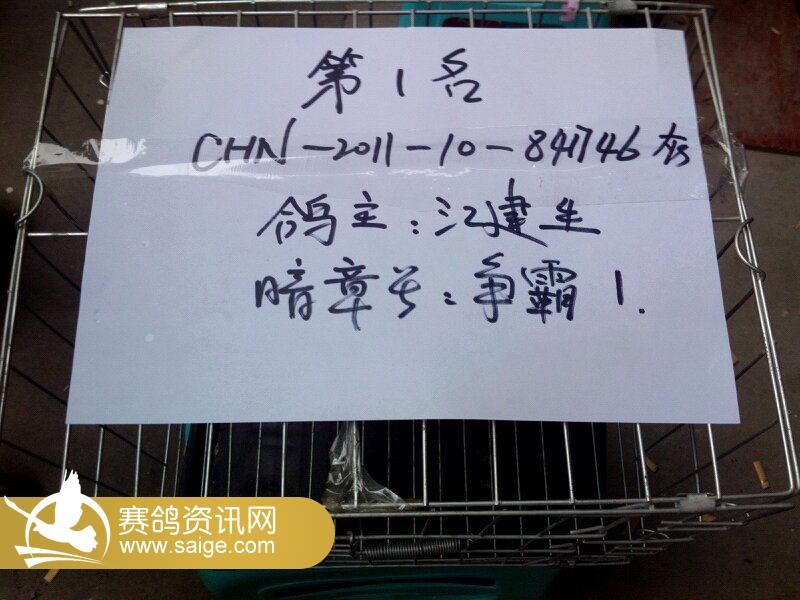 第1名
CHN-2011-10-841746灰
鸽主:江建生
暗章号:争霸1.
赛鸽资讯网
www.saige.com